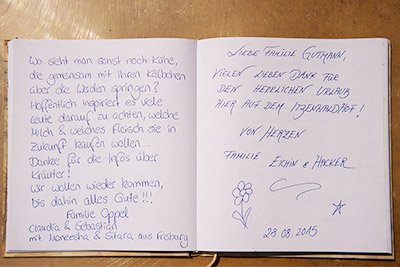 Wo sieht man sonst noch Kühe,
die gemeinsam mit ihren Kälbchen
über die Weiden springen?
Hoffentlich inspiriert es viele
Leute darauf zu achten, welche
Milch & welches Fleisch sie in
Zukunft kaufen wollen.
Danke für die Infos über
Kräuter!
Wir wollen wieder kommen,
bis dahin alles Gute!!!
Familie Oppel
Claudia & Sebastian
mit Maneesha & Sitara aus Freiburg
LIEBE FAMILIE GUTMANN,
VIELEN LIEBEN DANK FÜR
DEN HERRLICHEN URLAUB
HIER AUF DEM ITZENWALDHOF!
VON HERZEN
FAMILIE EICHIN & HACKER
28.08.2015